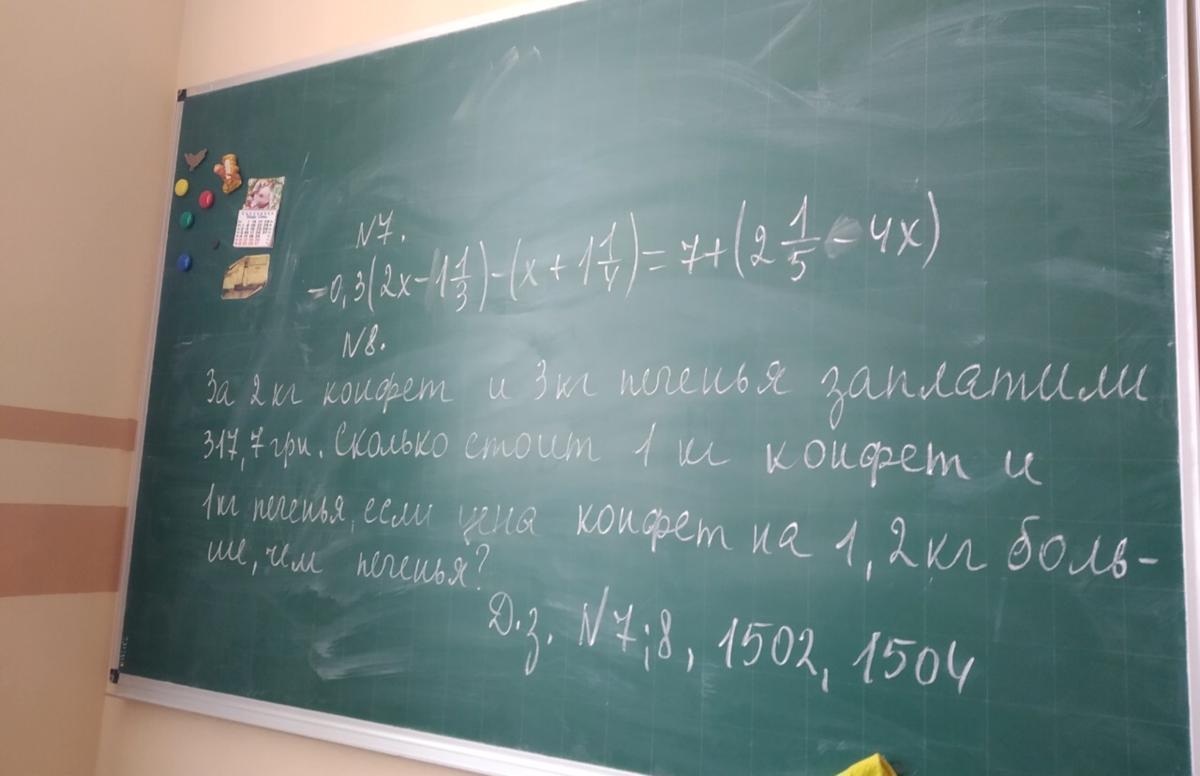 N7.
-0,3(2x-1 1/3)-(x+1 1/4)=7+(2 1/5-4x)
N8.
За 2 кг конфет и 3 кг печенья заплатили
317,7 грн. Сколько стоит 1 кг конфет и
1 кг печенья, если цена конфет на 1,2 кг боль-
ше, чем печенья?
Д.з. N7;8, 1502, 1504